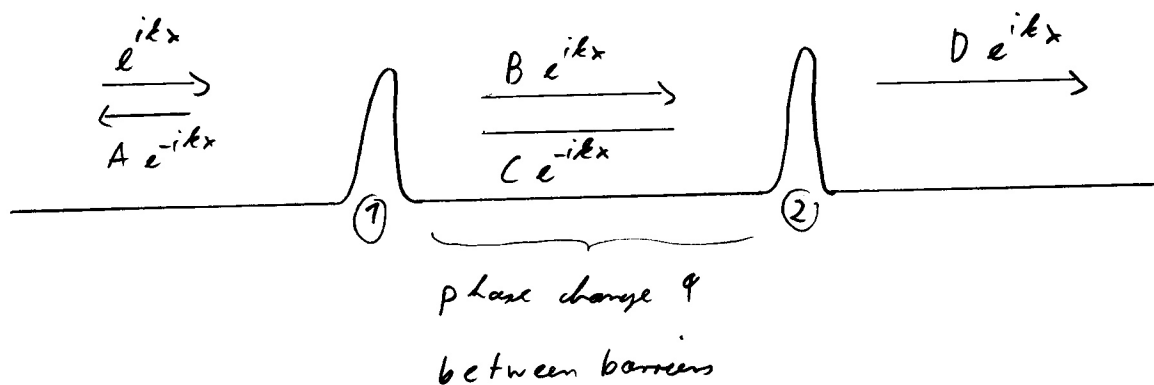 e^{ikx}
A e^{-ikx}
B e^{ikx}
C e^{-ikx}
D e^{ikx}
1
2
phase change φ
between barriers